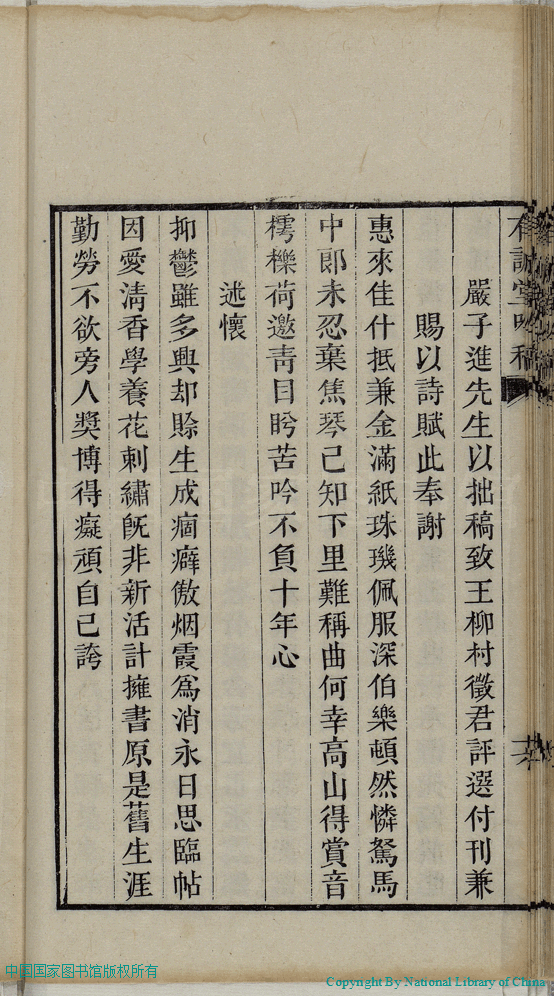 嚴子進先生以拙稿致王柳村徵君評選付刊兼
賜以詩賦此奉謝
惠來佳什抵兼金滿紙珠璣佩服深伯樂頓然憐駑馬
中郎未忍棄焦琴已知下里難稱曲何幸高山得賞音
樗櫟荷邀青目盻苦吟不負十年心
述懷
抑鬱雖多興却賒生成痼癖傲烟霞爲消永日思臨帖
因愛清香學養花刺繡旣非新活計擁書原是舊生涯
勤勞不欲旁人獎博得癡頑自己誇
中国国家图书馆版权所有
Copyright By National Library of China